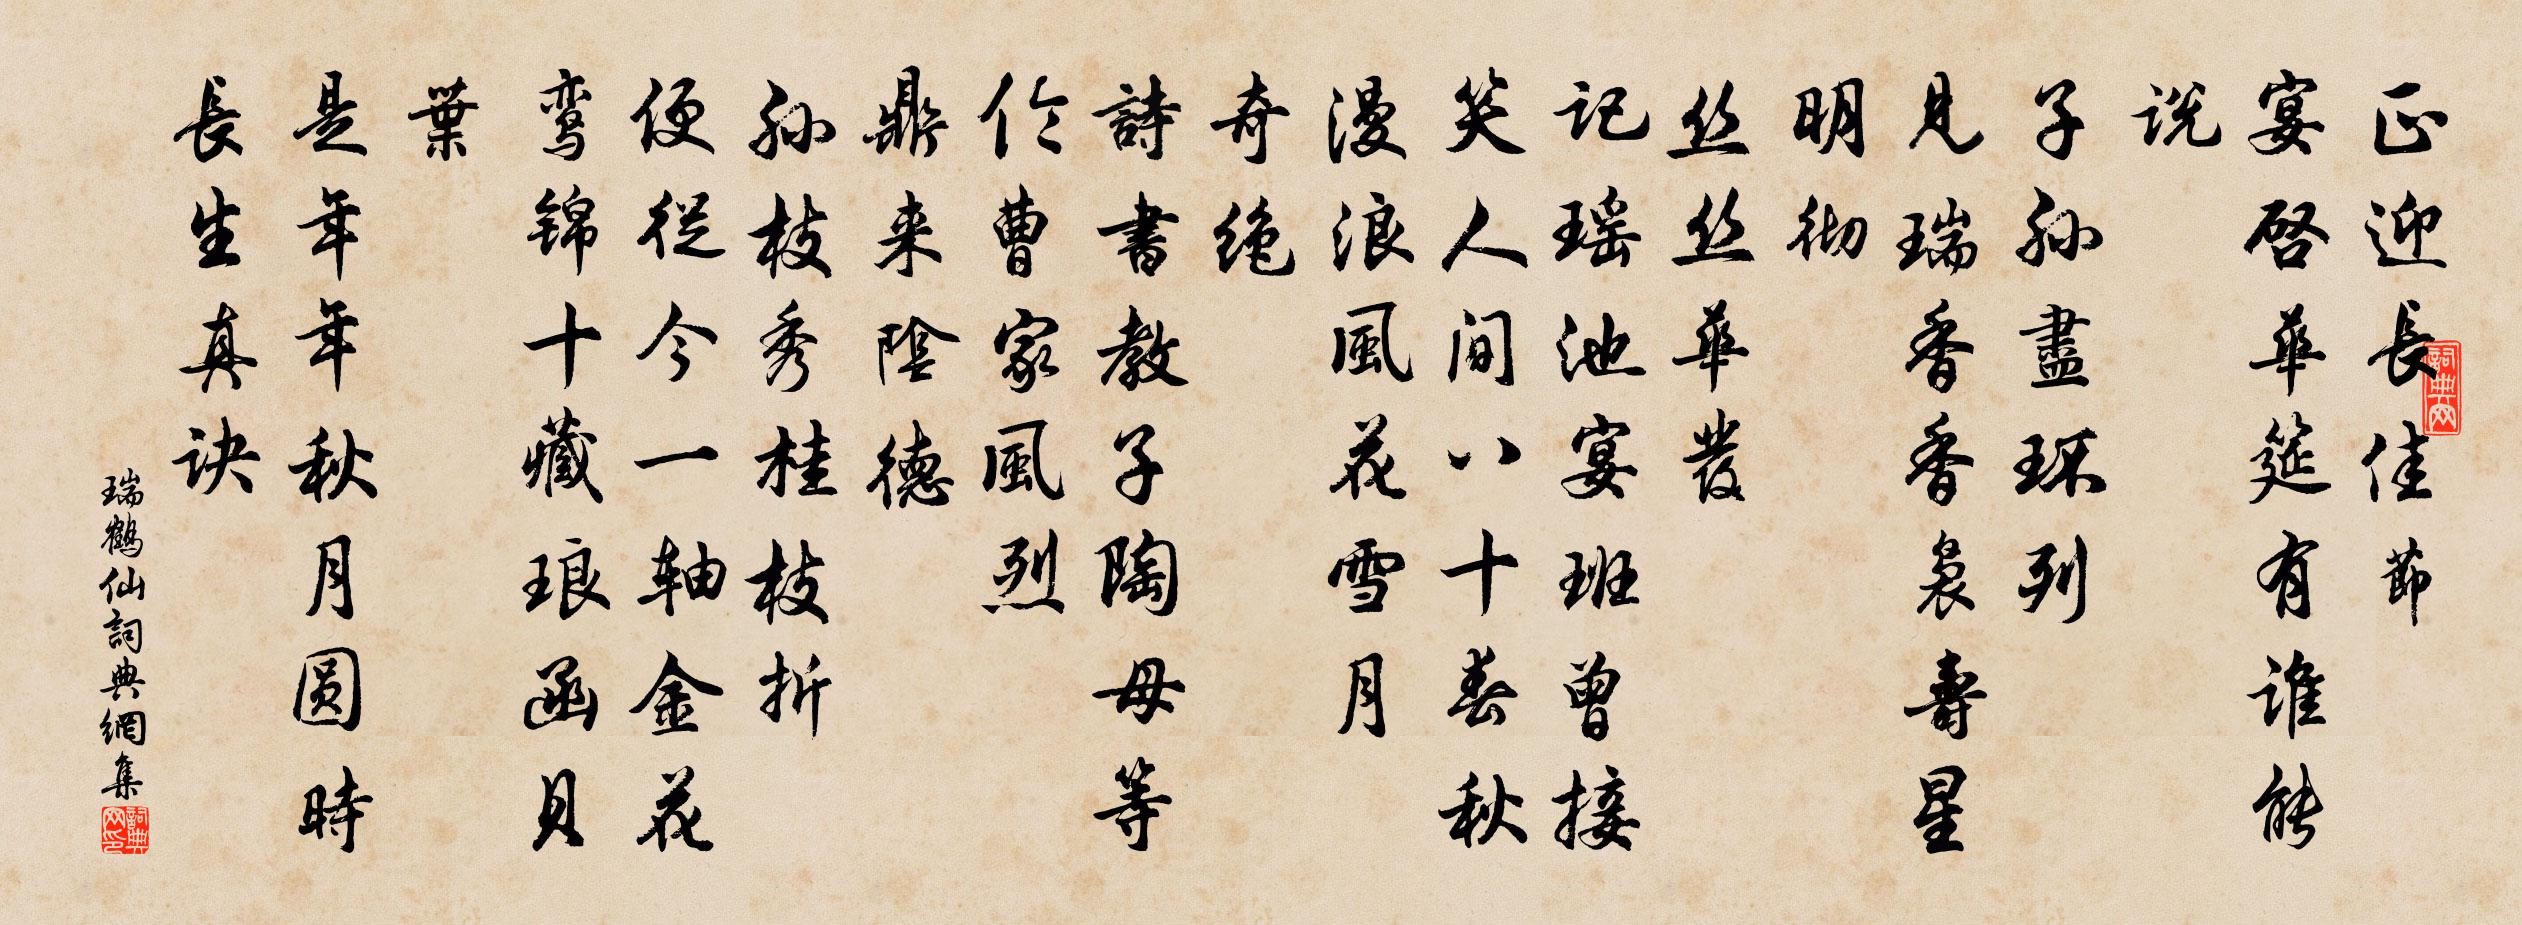 正迎長佳節
宴啓華筵有誰能
说
子孙盡环列
見瑞香香裊壽星
明彻
丝丝華發
记瑶池宴班曾接
笑人间八十春秋
漫浪風花雪月
奇绝
詩書教子陶母等
伦曹家風烈
鼎来陰德
孙枝秀桂枝折
便從今一轴金花
鸾锦十藏琅函貝
葉
是年年秋月圆時
長生真诀
瑞鶴仙詞典網集
詞典网
詞典网印